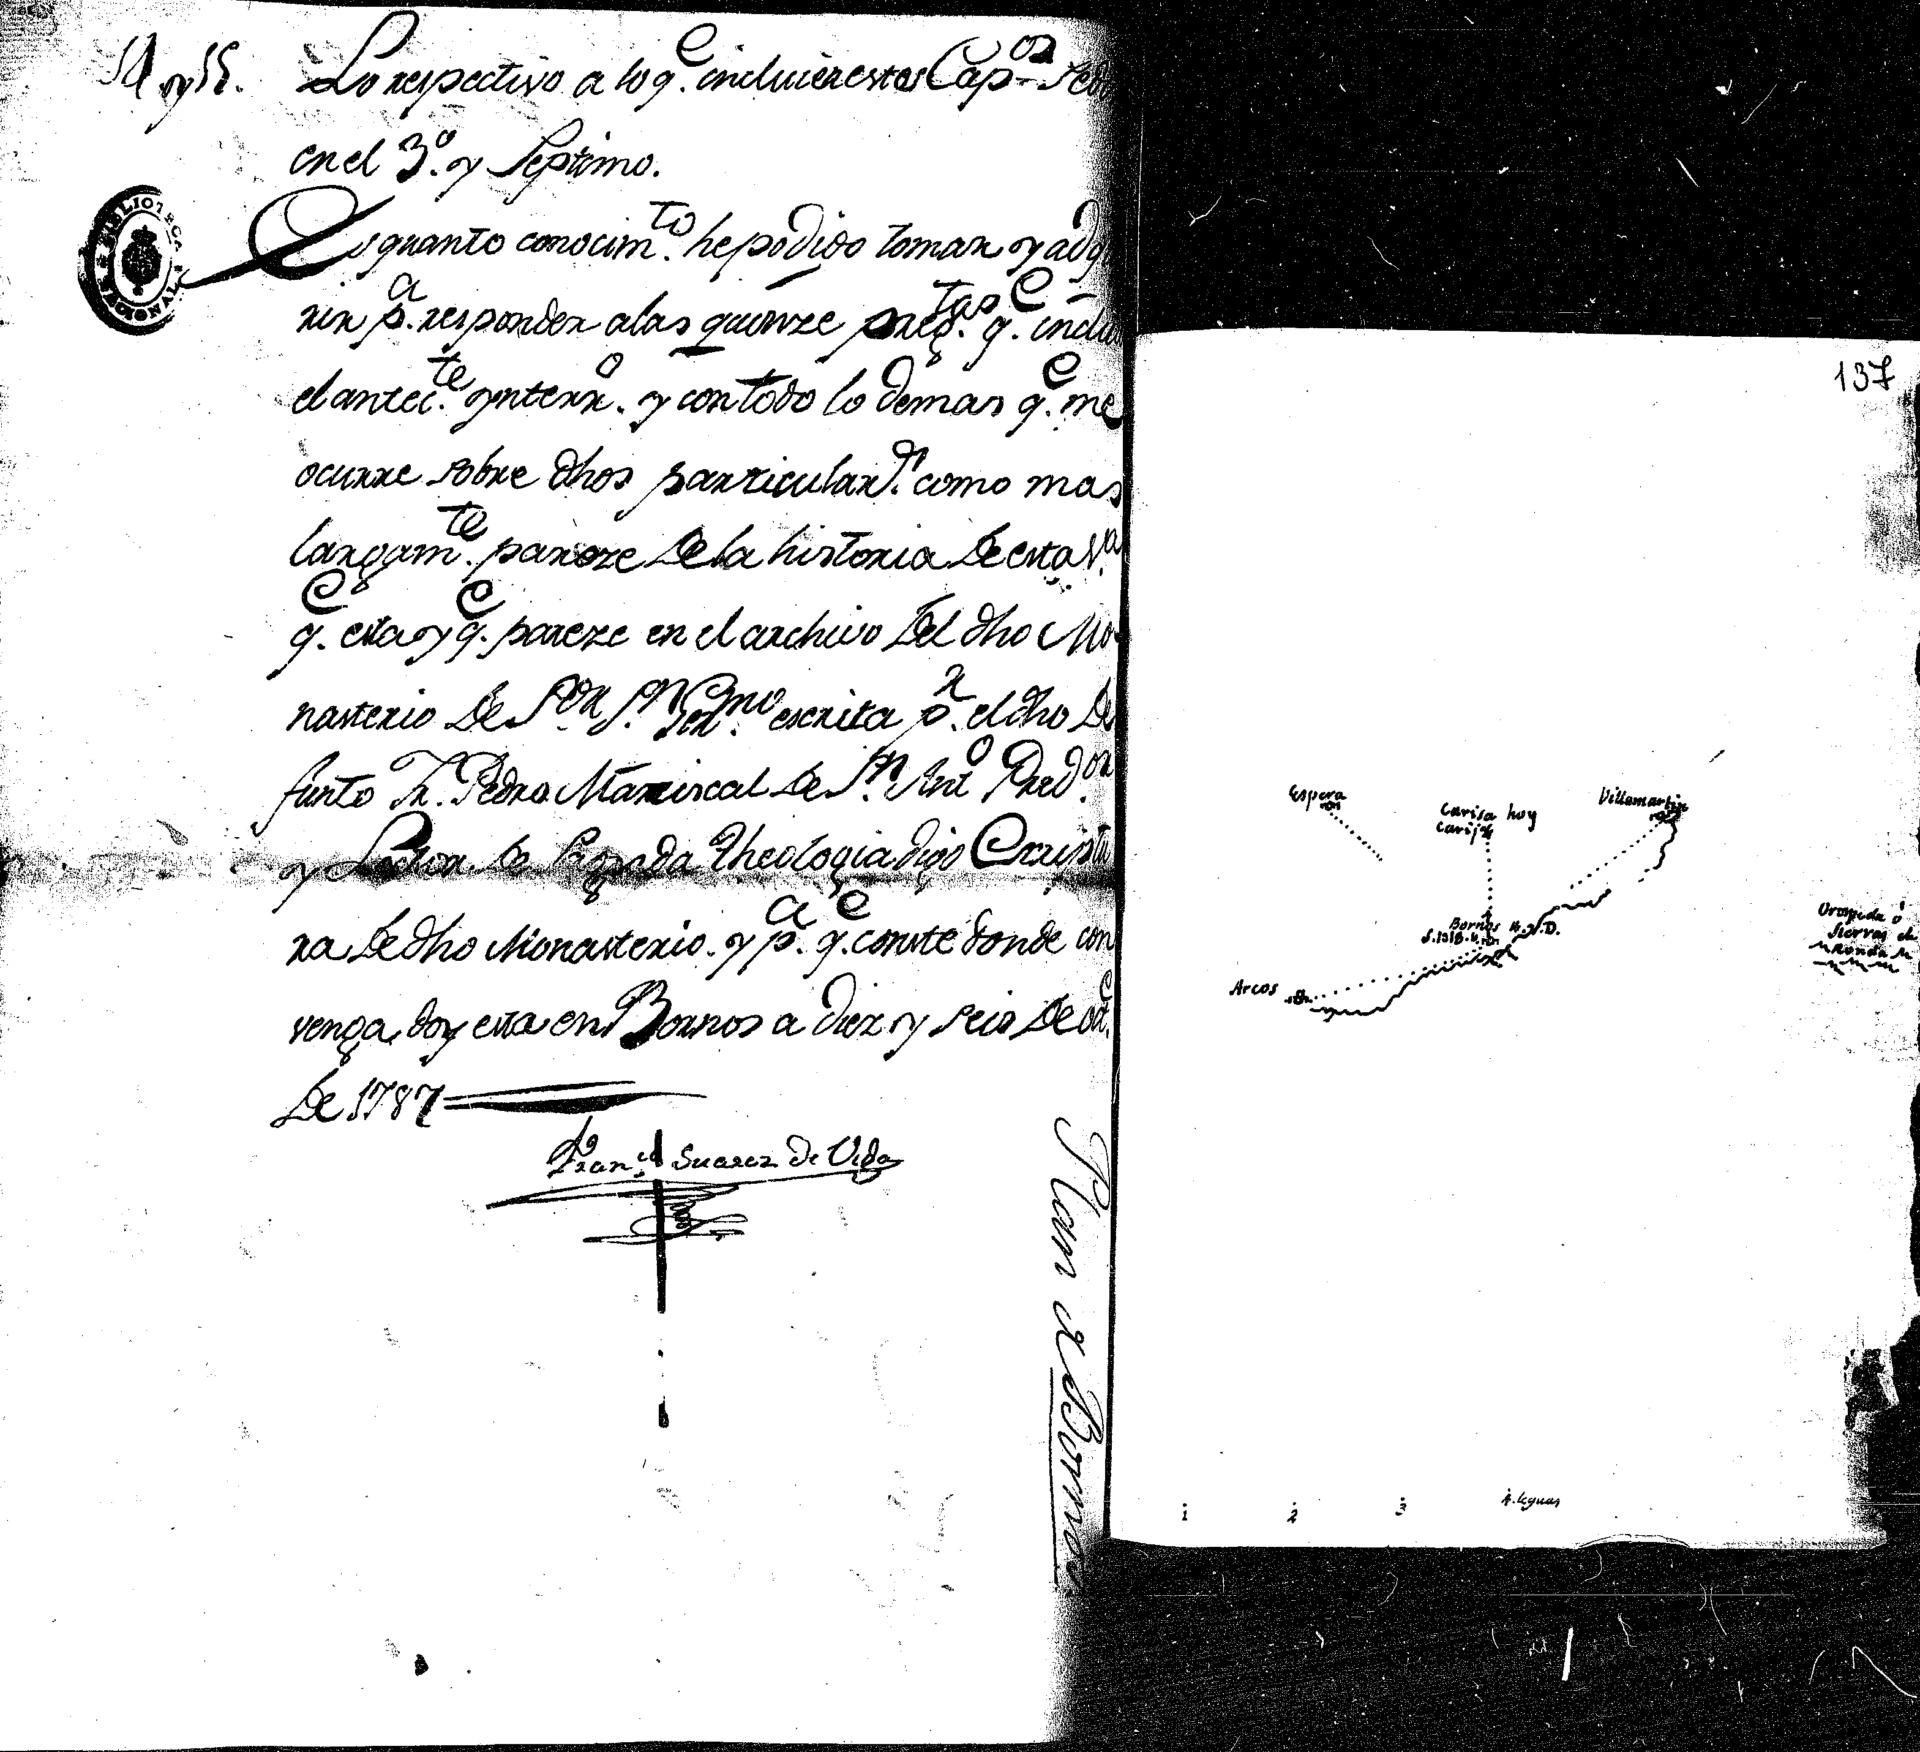 14 y 15. Lo respectivo a lo q.e incluien estos Cap.os
en el 3.o y Septimo.
BIBLIOTECA NACIONAL
Es quanto conocim.to he podido tomar y adq
rir p.a responder a las quinze preg.tas q.e inclu
el antec.te ynterr.o y con todo lo demas q.e me
ocurre sobre dhos particular.s como mas
largam.te pareze de la historia de esta V.a
q.e esta y q.e pareze en el archivo del dho Mo
nasterio de S.or S.n Ger.mo escrita p.r el dho de
funto Fr. Pedro Mariscal de S.n Ant.o Pred.or
y Lector de Sagrada Theologia digo Escriptu
ra de dho Monasterio. y p.a q.e conste donde con
venga, doy esta en Bornos a diez y seis de oct.e
de 1787
Fran.co Suarez de Vida
Plan de Bornos
137
Espera
Carisa hoy
Carija
Villamartin
Bornos
Arcos
Orospeda ó
Sierras de
Ronda
1 2 3 4. leguas